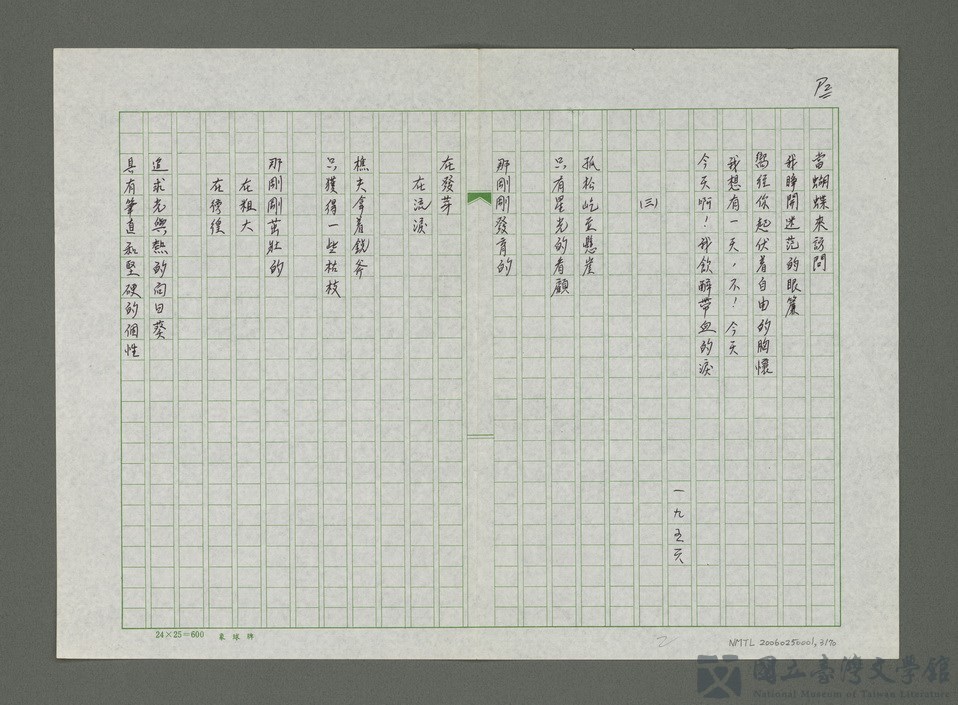 P2
當蝴蝶來訪問
我睜開迷茫的眼簾
嚮往你起伏着自由的胸懷
我想有一天,不!今天
今天啊!我飲醉帶血的淚
一九五六
(三)
孤松屹至懸崖
只有星光的看顧
那剛剛發育的
在發芽
在流淚
樵夫拿着銳斧
只獲得一些枯枝
那剛剛茁壯的
在粗大
在徬徨
追求光與熱的向日葵
具有筆直和堅硬的個性
24×25=600
象球牌
2
NMTL 20060250001, 3170
國立臺灣文學館
National Museum of Taiwan Literature